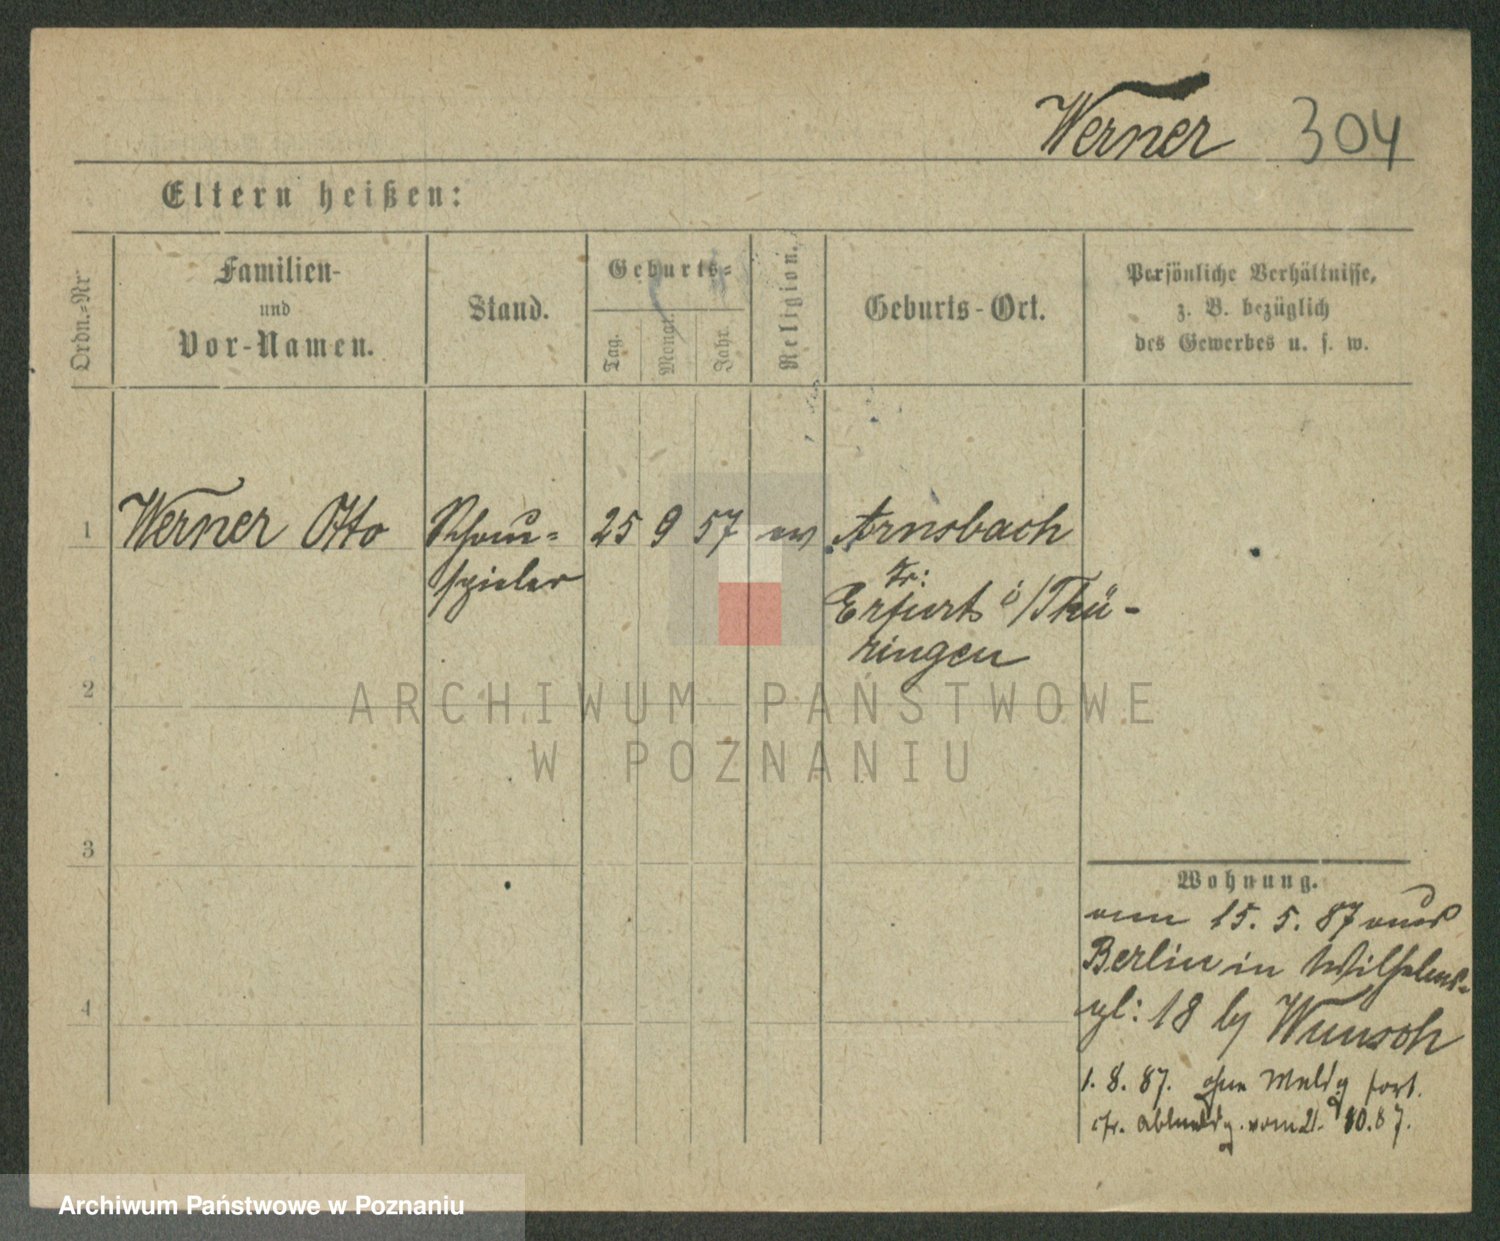 Werner 304
Eltern heißen:
Ordn.-Nr
Familien-
und
Vor-Namen.
Stand.
Geburts-
Tag.
Monat.
Jahr.
Religion.
Geburts-Ort.
Persönliche Verhältnisse,
z. B. bezüglich
des Gewerbes u. s. w.
1 Werner Otto Schau- 25 9 57 ev Arnsbach
spieler Kr:
Erfurt i/Thü-
ringen
2
3
4
Wohnung.
vom 15. 5. 87 aus
Berlin in Wilhelms-
pl: 18 by Wunsch
1. 8. 87. ohne Meldg fort.
Abmeldg. vom 21. 10. 87.
ARCHIWUM PAŃSTWOWE
W POZNANIU
Archiwum Państwowe w Poznaniu